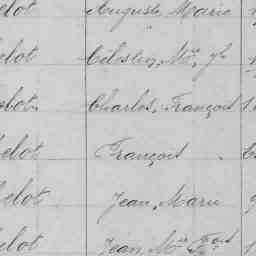 elot Auguste, Marie
elot Célestin, Mie, J
elot Charles, François
elot François
elot Jean, Marie
elot Jean, Mie Fçois